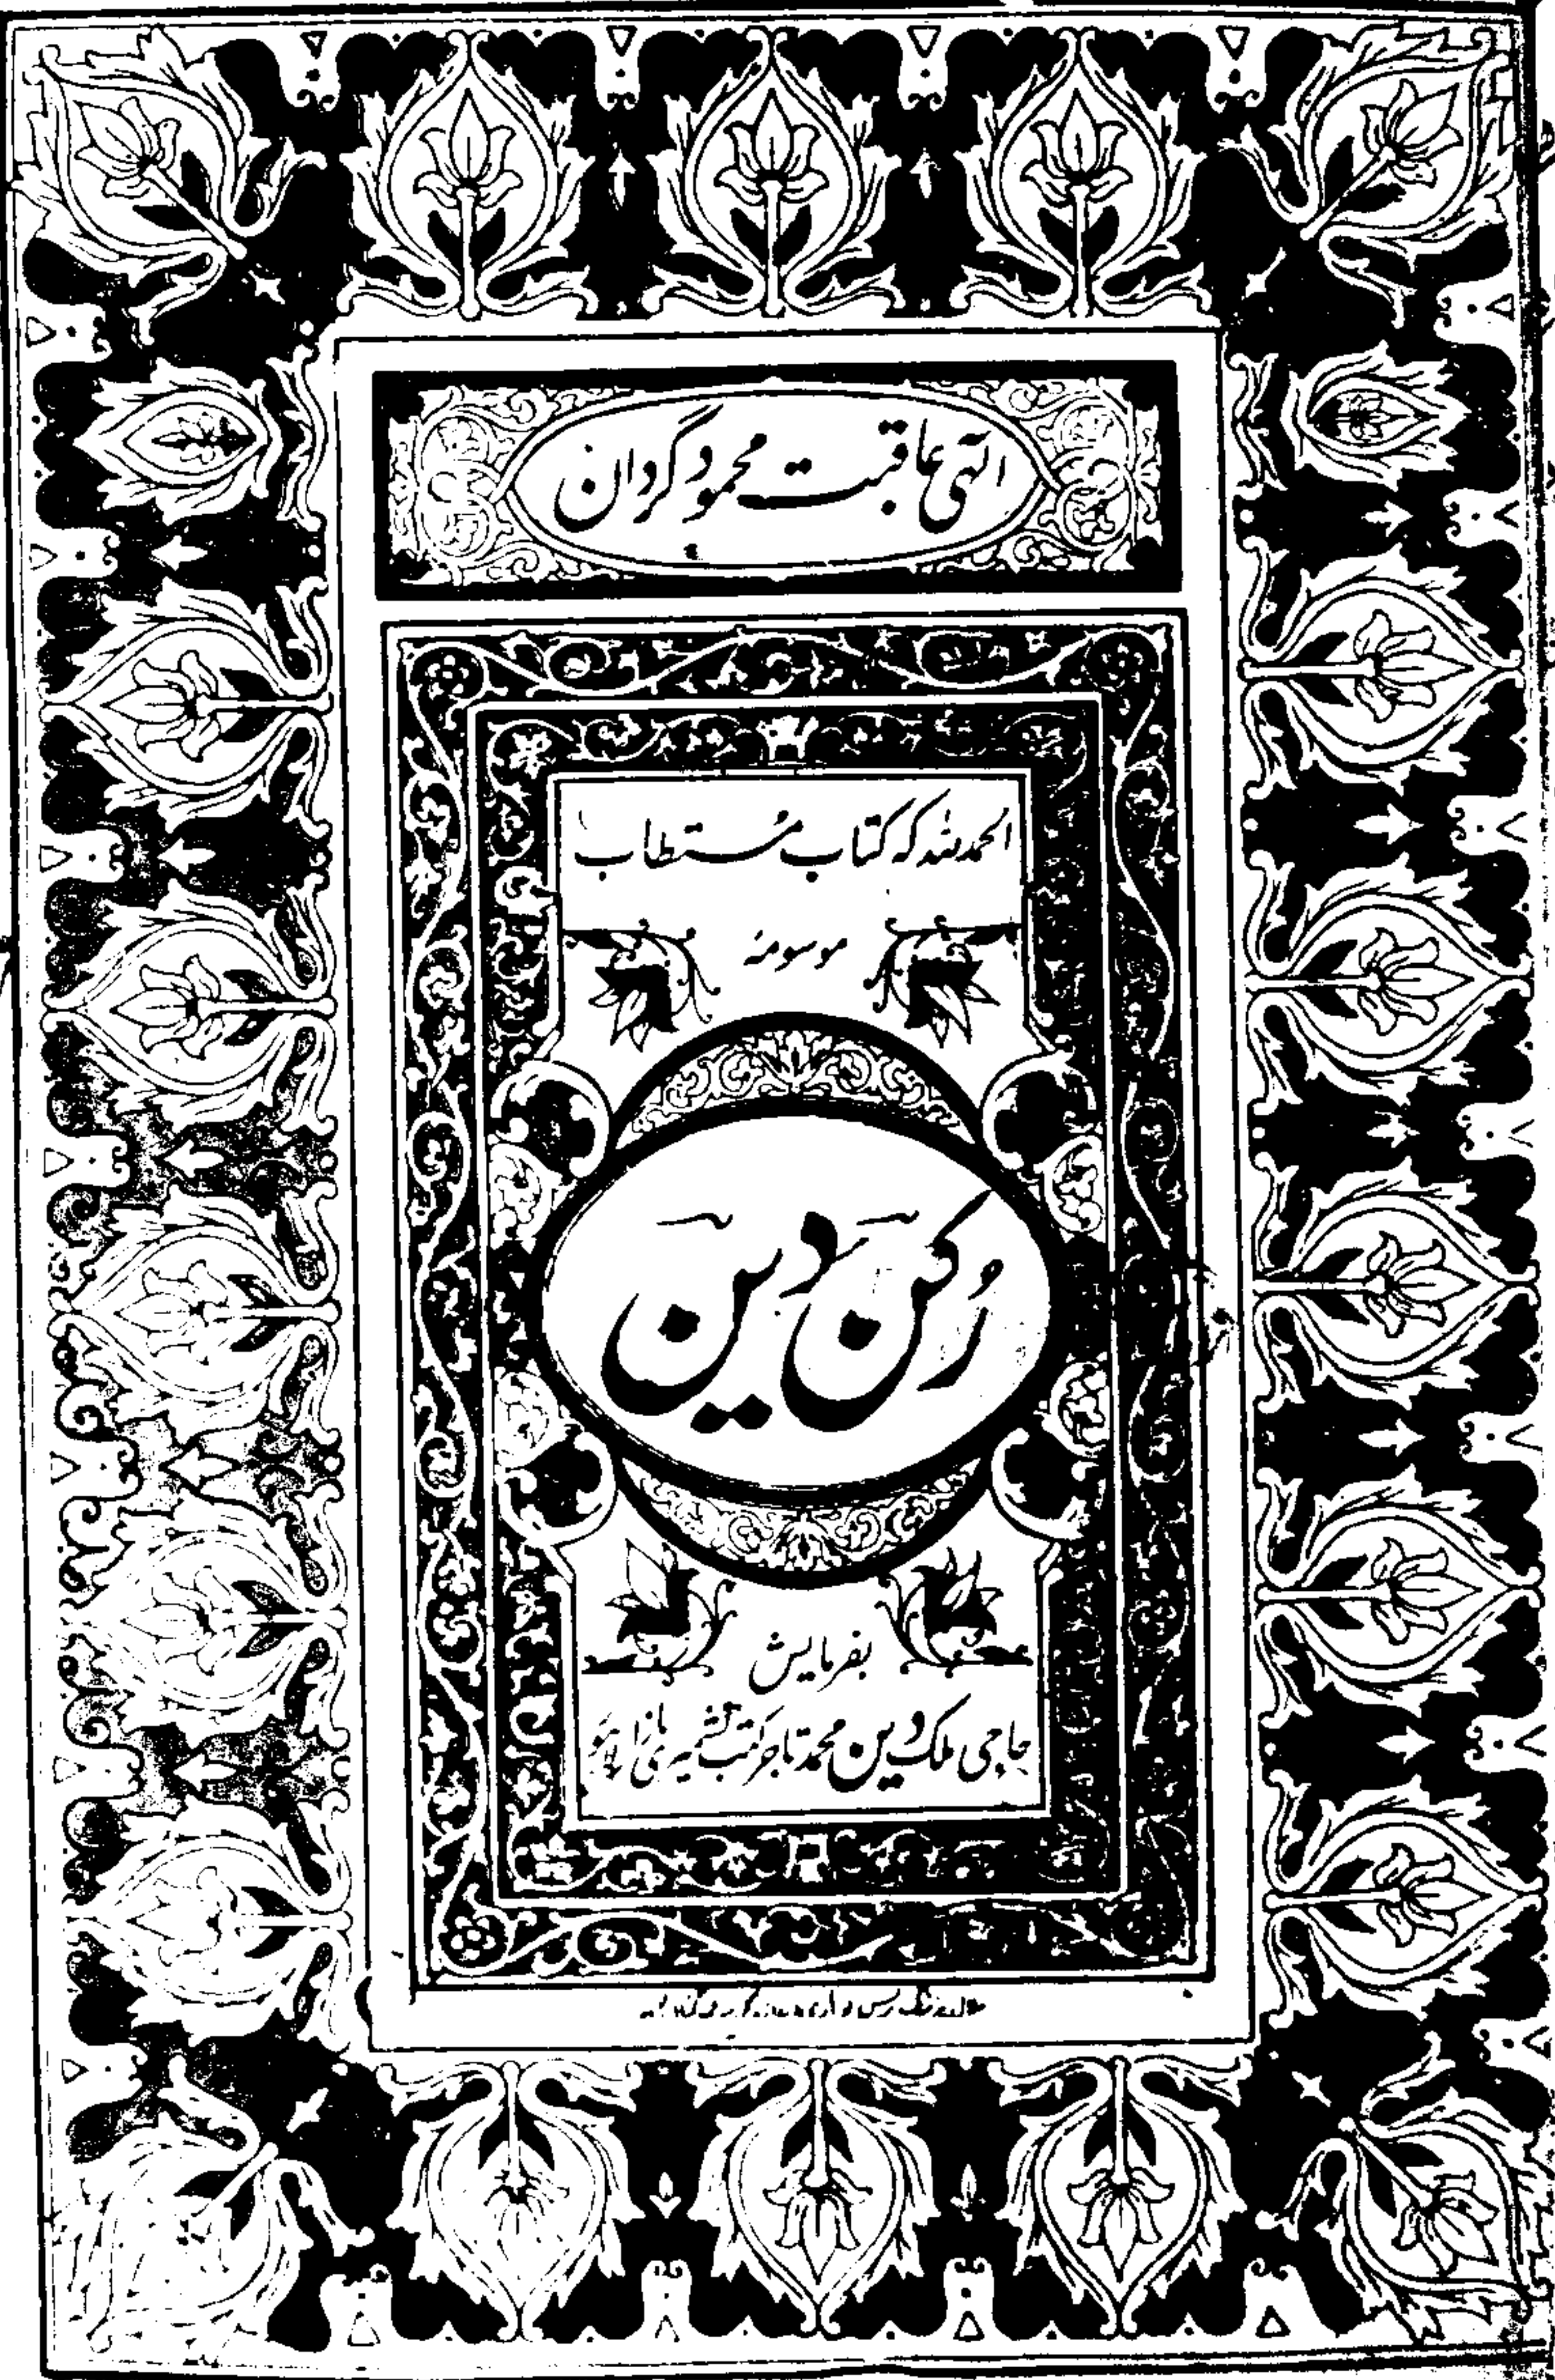 الٰہی عاقبت محمود گردان
الحمد للہ کہ کتاب مُستطاب
موسومہ
رُکن دین
بفرمایش
حاجی ملک دین محمد تاجر کتب کشمیری بازار لاہور